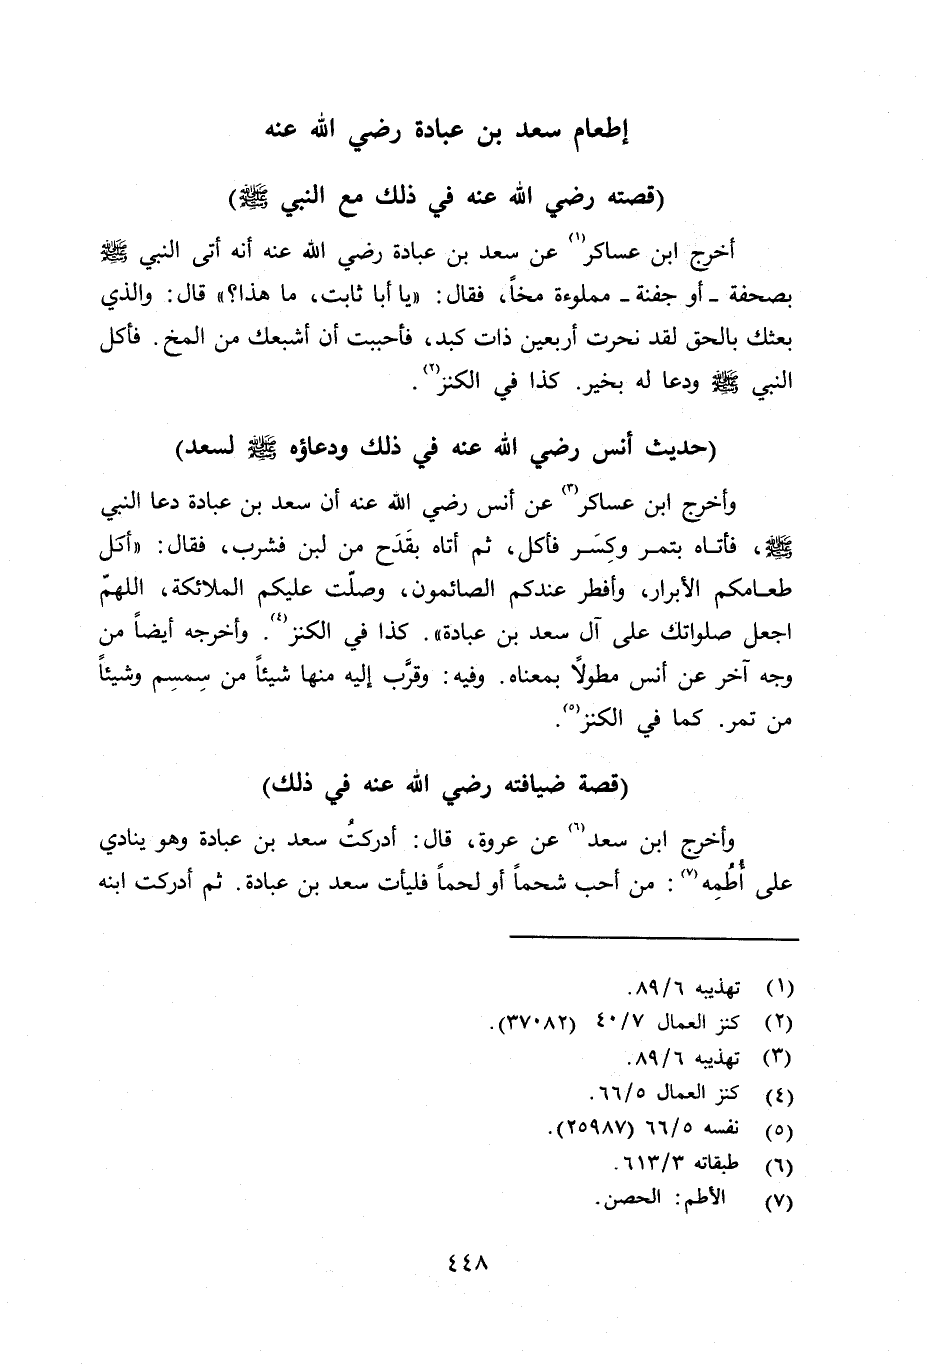 إطعام سعد بن عبادة رضي الله عنه
(قصته رضي الله عنه في ذلك مع النبي ﷺ)
أخرج ابن عساكر(١) عن سعد بن عبادة رضي الله عنه أنه أتى النبي ﷺ
بصحفة ـ أو جفنة ـ مملوءة مخاً، فقال: «يا أبا ثابت، ما هذا؟» قال: والذي
بعثك بالحق لقد نحرت أربعين ذات كبد، فأحببت أن أشبعك من المخ. فأكل
النبي ﷺ ودعا له بخير. كذا في الكنز(٢).
(حديث أنس رضي الله عنه في ذلك ودعاؤه ﷺ لسعد)
وأخرج ابن عساكر(٣) عن أنس رضي الله عنه أن سعد بن عبادة دعا النبي
ﷺ، فأتـاه بتمـر وكِسَـر فأكل، ثم أتاه بقَدَح من لبن فشرب، فقال: «أكل
طعـامكم الأبرار، وأفطر عندكم الصائمون، وصلّت عليكم الملائكة، اللهمّ
اجعل صلواتك على آل سعد بن عبادة». كذا في الكنز(٤). وأخرجه أيضاً من
وجه آخر عن أنس مطولاً بمعناه. وفيه: وقرَّب إليه منها شيئاً من سِمسِم وشيئاً
من تمر. كما في الكنز(٥).
(قصة ضيافته رضي الله عنه في ذلك)
وأخرج ابن سعد(٦) عن عروة، قال: أدركتُ سعد بن عبادة وهو ينادي
على أُطُمِه(٧): من أحب شحماً أو لحماً فليأت سعد بن عبادة. ثم أدركت ابنه
(١) تهذيبه ٨٩/٦.
(٢) كنز العمال ٤٠/٧ (٣٧٠٨٢).
(٣) تهذيبه ٨٩/٦.
(٤) كنز العمال ٦٦/٥.
(٥) نفسه ٦٦/٥ (٢٥٩٨٧).
(٦) طبقاته ٦١٣/٣.
(٧) الأطم: الحصن.
٤٤٨